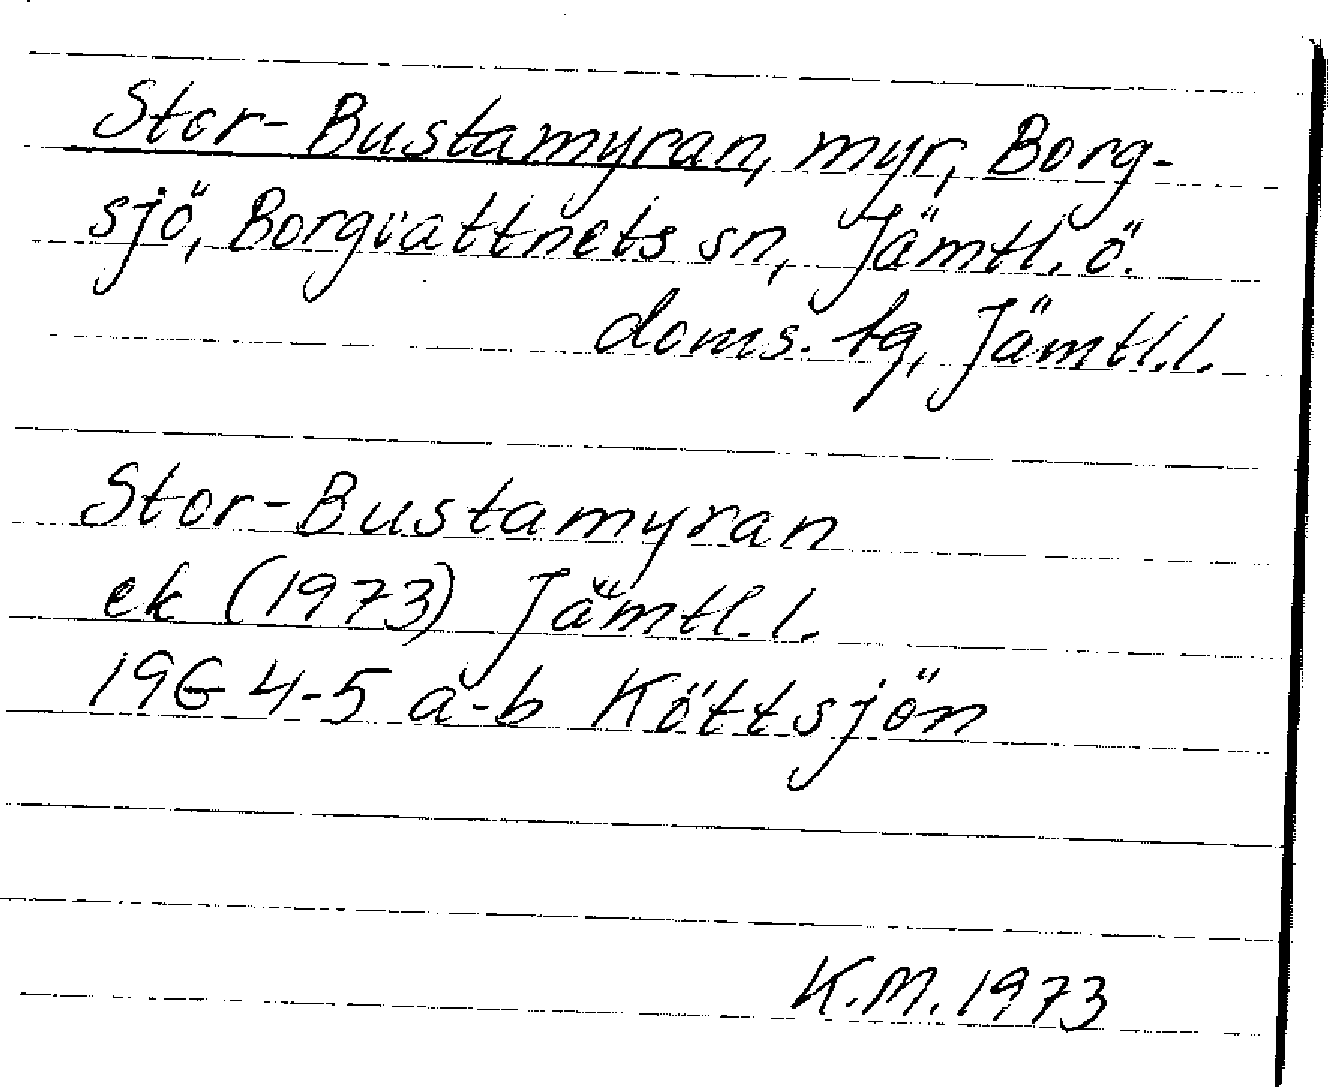 Stor-Bustamyran, myr, Borg-
sjö, Borgvattnets sn, Jämtl. ö.
doms. tg, Jämtl.l.
Stor-Bustamyran
ek (1973) Jämtl.l.
19G 4-5 a-b Köttsjön
K.M. 1973